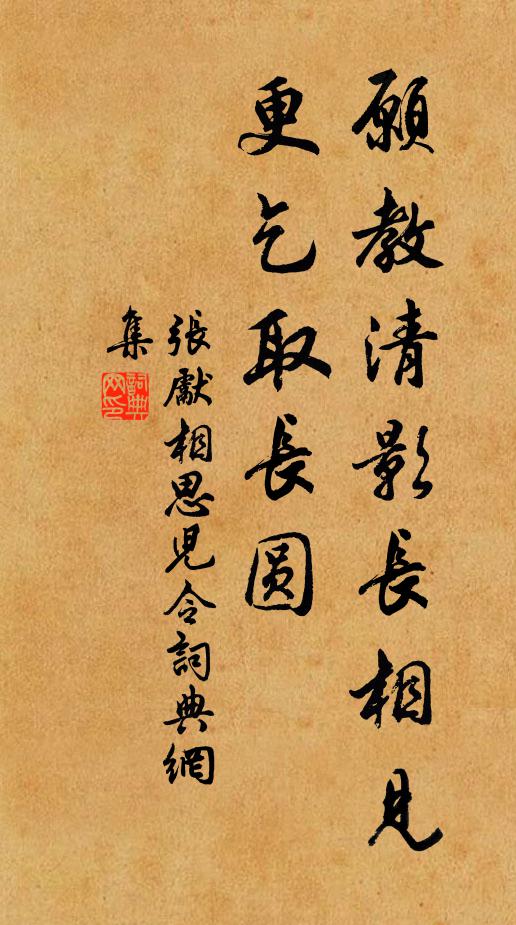 願教清影長相見
更乞取長圆
張獻相思兒令詞典網
集
詞典
网印